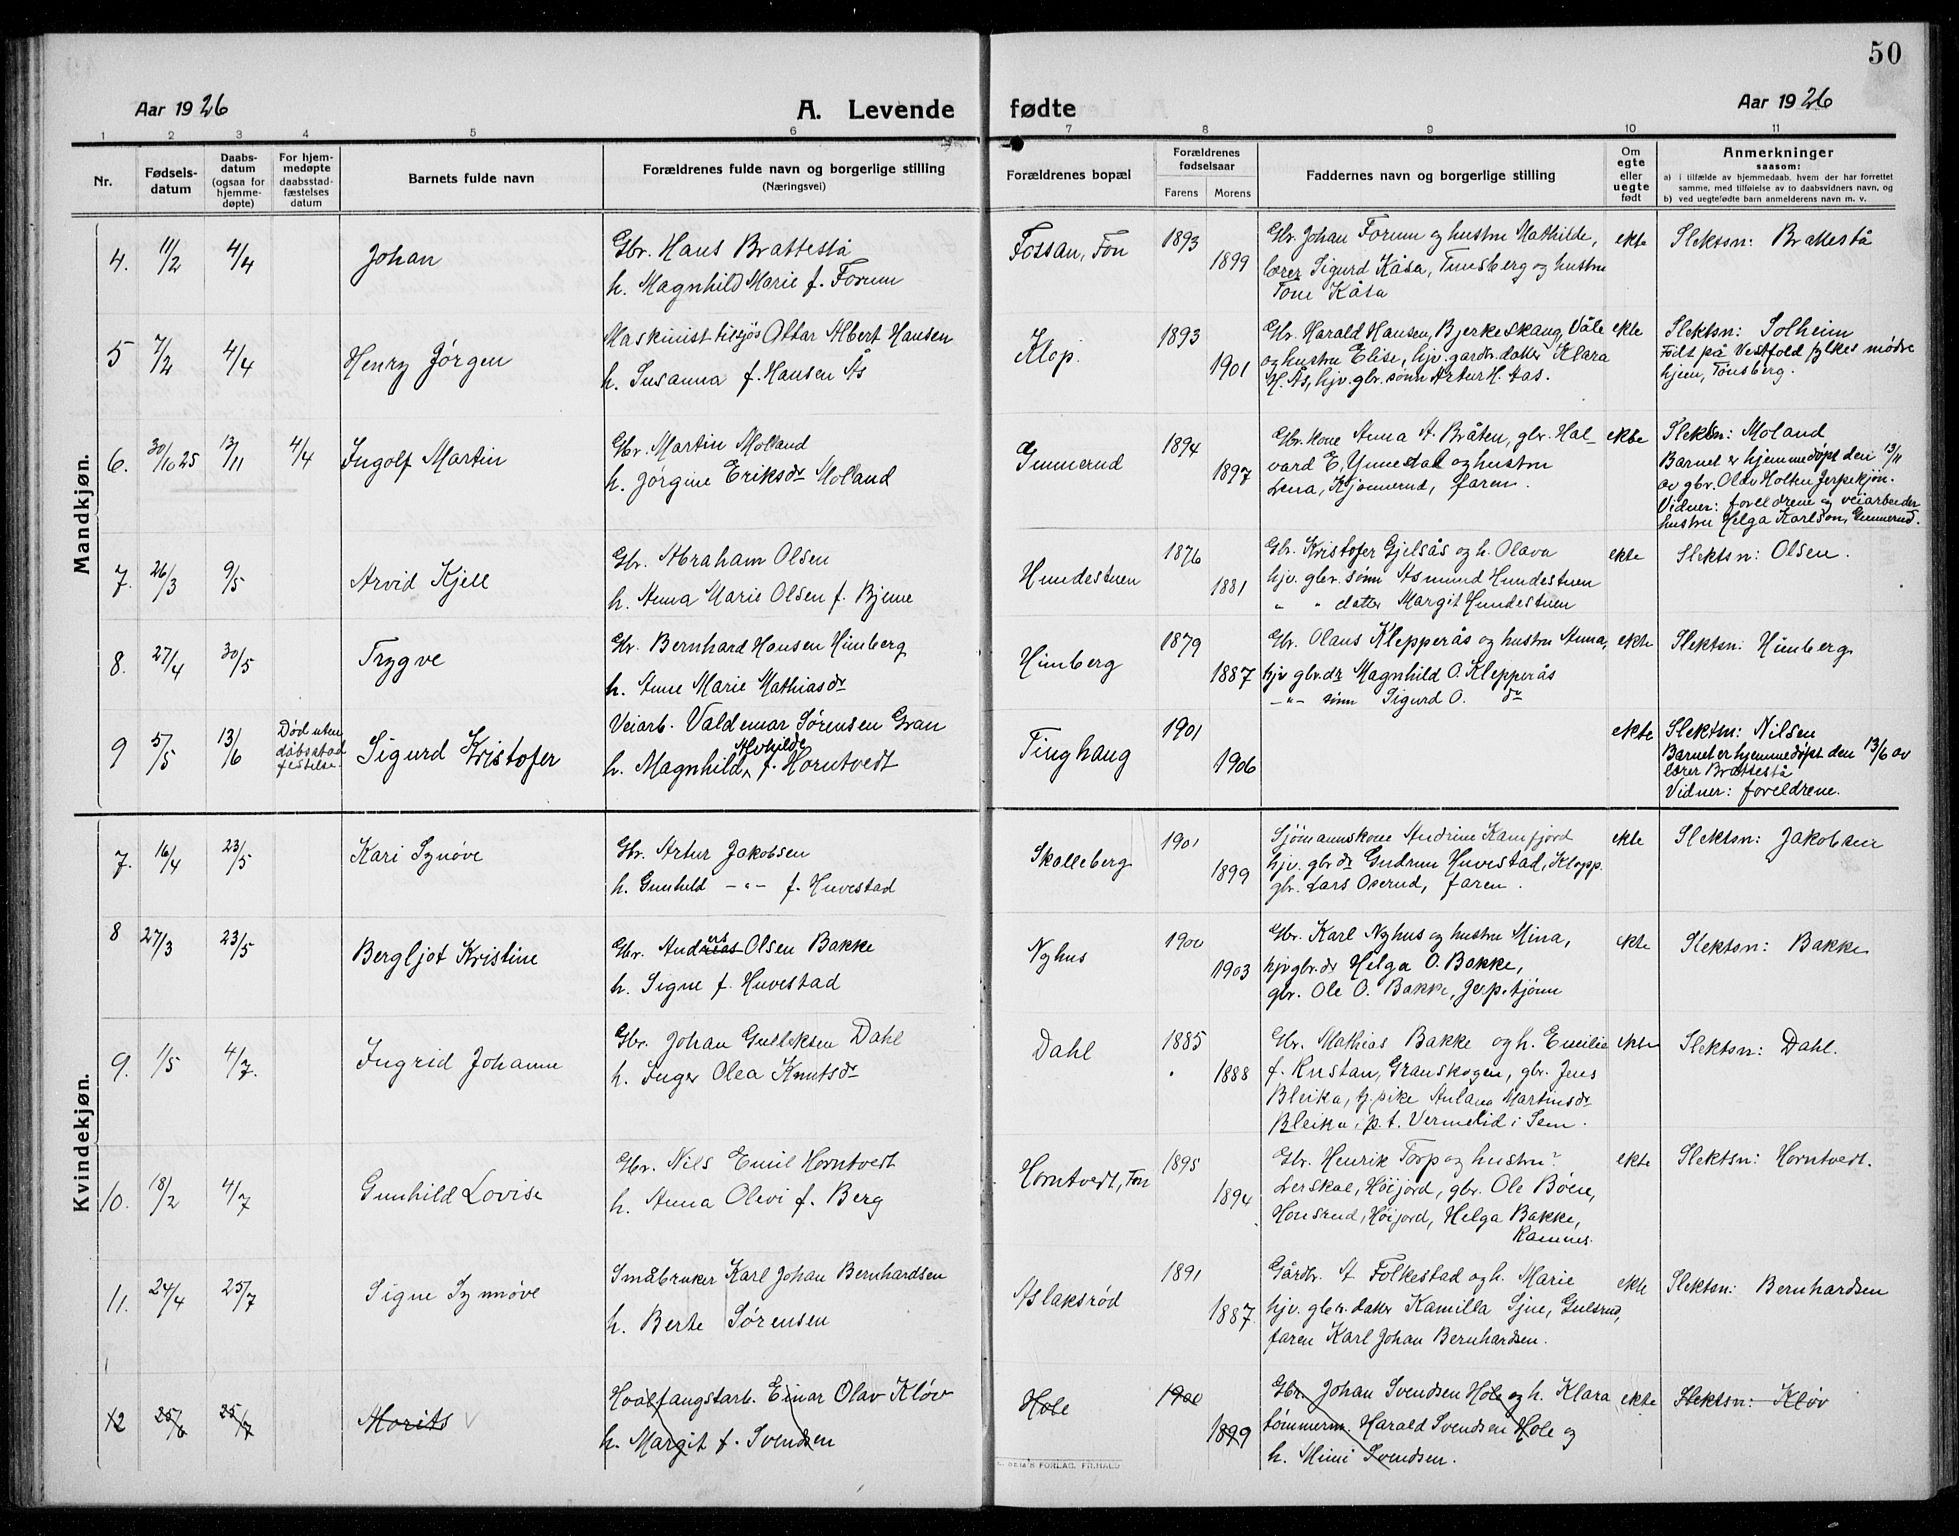 50
Aar 1926
A. Levende fødte
Aar 1926
1 2 3 4 5 6 7 8 9 10 11
Nr.
Fødsels-
datum
Daabs-
datum
(ogsaa for
hjemme-
døpte)
For hjem-
medøpte
daabsstad-
fæstelses
datum
Barnets fulde navn
Forældrenes fulde navn og borgerlige stilling
(Næringsvei)
Forældrenes bopæl
Forældrenes
fødselsaar
Farens Morens
Faddernes navn og borgerlige stilling
Om
egte
eller
uegte
født
Anmerkninger
saasom:
a) i tilfælde av hjemmedaab, hvem der har forrettet
samme, med tilføielse av to daabsvidners navn, og
b) ved uegtefødte barn anmelderens navn m. v.
Mandkjøn.
4. 11/2 4/4 Johan
Gbr. Hans Brattestå
h. Magnhild Marie f. Forum
Fossan, Fon 1893 1899
Gbr. Johan Forum og hustru Mathilde,
lærer Sigurd Kåsa, Tunsberg og hustru
Tone Kåsa
ekte Slektsn: Brattestå
5 7/2 4/4 Henry Jørgen
Maskinist tilsjøs Ottar Albert Hansen
h. Susanna f. Hansen Ås
Klop. 1893 1901
Gbr. Harald Hansen, Bjerkeskaug, Våle
og hustru Elise, hjv. gardbr. datter Klara
H. Ås, hjv. gbr. sønn Artur H. Aas.
ekte Slektsn: Solheim
Født på Vestfold fylkes mødre
hjem, Tønsberg.
6. 30/10 25 13/11 4/4 Ingolf Martin
Gbr. Martin Molland
h. Jørgine Eriksdr Molland
Gunnerud 1894 1897
Gbr. kone Anna A. Bråten, gbr. Hal-
vard E. Unnestad og hustru
Lena, Kjønnerud, faren.
ekte Slektsn: Moland
Barnet er hjemmedøpt den 13/11
av gbr. Olav Holten Jerpekjøn.
Vidner: foreldrene og veiarbeider
hustru Helga Karlson, Gunnerud.
7. 26/3 9/5 Arvid Kjell
Gbr. Abraham Olsen
h. Anna Marie Olsen f. Bjerne
Hundestuen 1876 1881
Gbr. Kristofer Gjelsås og h. Olava
hjv. gbr. sønn Asmund Hundestuen
" " datter Margit Hundestuen
ekte Slektsn: Olsen.
8. 27/4 30/5 Trygve
Gbr. Bernhard Hansen Himberg
h. Anne Marie Mathiasdr
Himberg 1879 1887
Gbr. Olaus Klepperås og hustru Anna,
hjv gbr. dr Magnhild O. Klepperås
-"- sønn Sigurd O. do
ekte Slektsn: Himberg
9 5/5 13/6 Død uten
dåbsstad
festelse. Sigurd Kristofer
Veiarb. Valdemar Sørensen Gran
h. Magnhild Alvhilde f. Horntvedt
Tinghaug 1901 1906
ekte Slektsn: Nilsen
Barnet er hjemmedøpt den 13/6 av
lærer Brattestå
Vidner: foreldrene.
Kvindekjøn.
7. 16/4 23/5 Kari Synøve
Gbr. Artur Jakobsen
h. Gunhild -"- f. Huvestad
Skalleberg 1901 1899
Sjømannskone Andrine Kamfjord
hjv. gbr dr Gudrun Huvestad, Klopp.
gbr. Lars Oserud, faren.
ekte Slektsn: Jakobsen
8 27/3 23/5 Bergljot Kristine
Gbr. Andreas ers Olsen Bakke
h. Signe f. Huvestad
Nyhus 1900 1903
Gbr. Karl Nyhus og hustru Mina,
hjv gbr. dr Helga O. Bakke,
gbr. Ole O. Bakke, Jerpetjønn
ekte Slektsn: Bakke
9. 1/5 4/7. Ingrid Johanne
Gbr. Johan Gulliksen Dahl
h. Inger Olea Knutsdr
Dahl 1885 1888
Gbr. Mathias Bakke og h. Emilie
f. Rustan, Granskogen, gbr. Jens
Bleika, tj. pike Aulana Martinsdr
Bleika, p.t. Vermelid i Sem.
ekte Slektsn: Dahl.
10. 18/2 4/7 Gunhild Lovise
Gbr. Nils Emil Horntvedt
h. Anna Olevi f. Berg
Horntvedt, Fon 1895 1894
Gbr. Henrik Torp og hustru?
Lerskal, Høijord, gbr. Ole Bøen,
Honsrud, Høijord, Helga Bakke,
Ramnes.
ekte Slektsn: Horntvedt.
11. 24/4 25/7 Signe Synnøve
Småbruker Karl Johan Bernhardsen
h. Berte Sørensen
Aslaksrød 1891 1887.
Gårdbr. A Folkestad og h. Marie
hjv. gbr. datter Kamilla Sjue, Gulsrud,
faren Karl Johan Bernhardsen.
ekte Slektsn: Bernhardsen
12 25/6 25/7 Morits
Hvalfangstarb. Einar Olav Kløv
h. Margit f. Svendsen
Hole 1900 1899
Gbr. Johan Svendsen Hole og h. Klara
tømmerm. Harald Svendsen Hole og
h. Mimi Svendsen.
ekte Slektsn: Kløv
FORLAG. FR.HALD